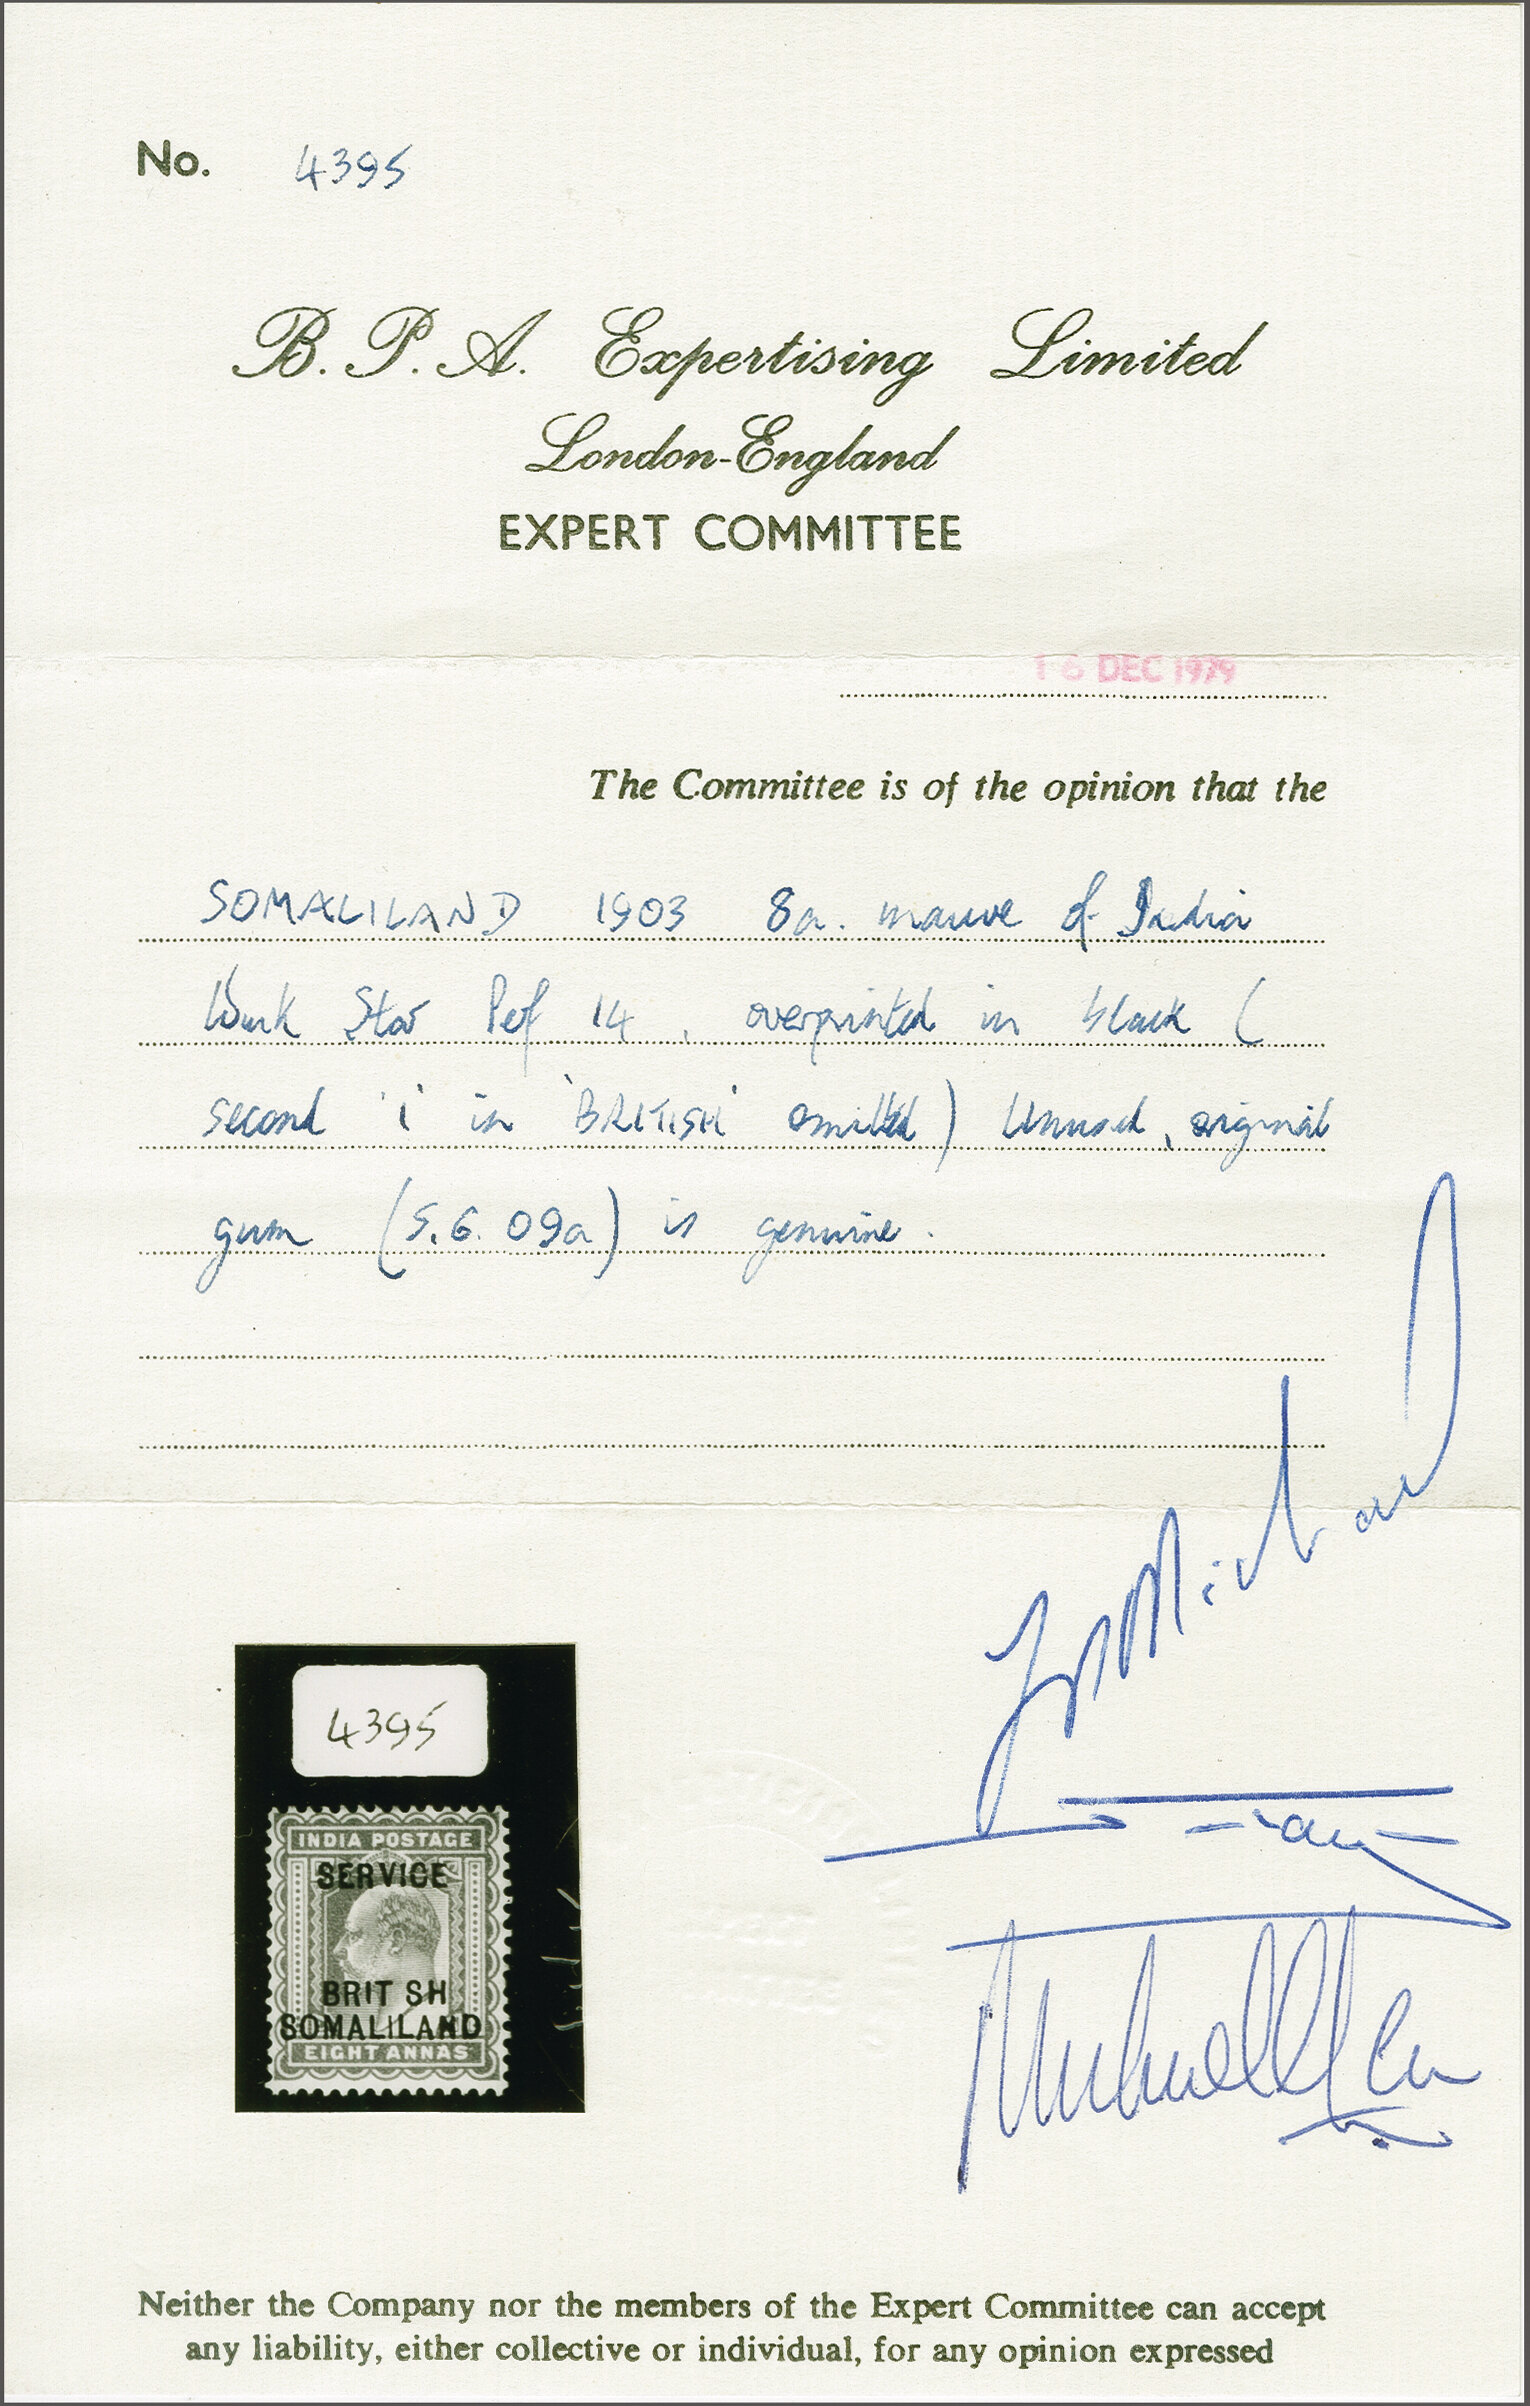 No. 4395
B. P. A. Expertising Limited
London-England
EXPERT COMMITTEE
16 DEC 1979
The Committee is of the opinion that the
SOMALILAND 1903 8a. mauve of India
Wmk Star Perf 14, overprinted in black (
second 'i' in 'BRITISH' omitted) Unused, original
gum (S.G. 09a) is genuine.
4395
INDIA POSTAGE
SERVICE
BRIT SH
SOMALILAND
EIGHT ANNAS
Neither the Company nor the members of the Expert Committee can accept
any liability, either collective or individual, for any opinion expressed